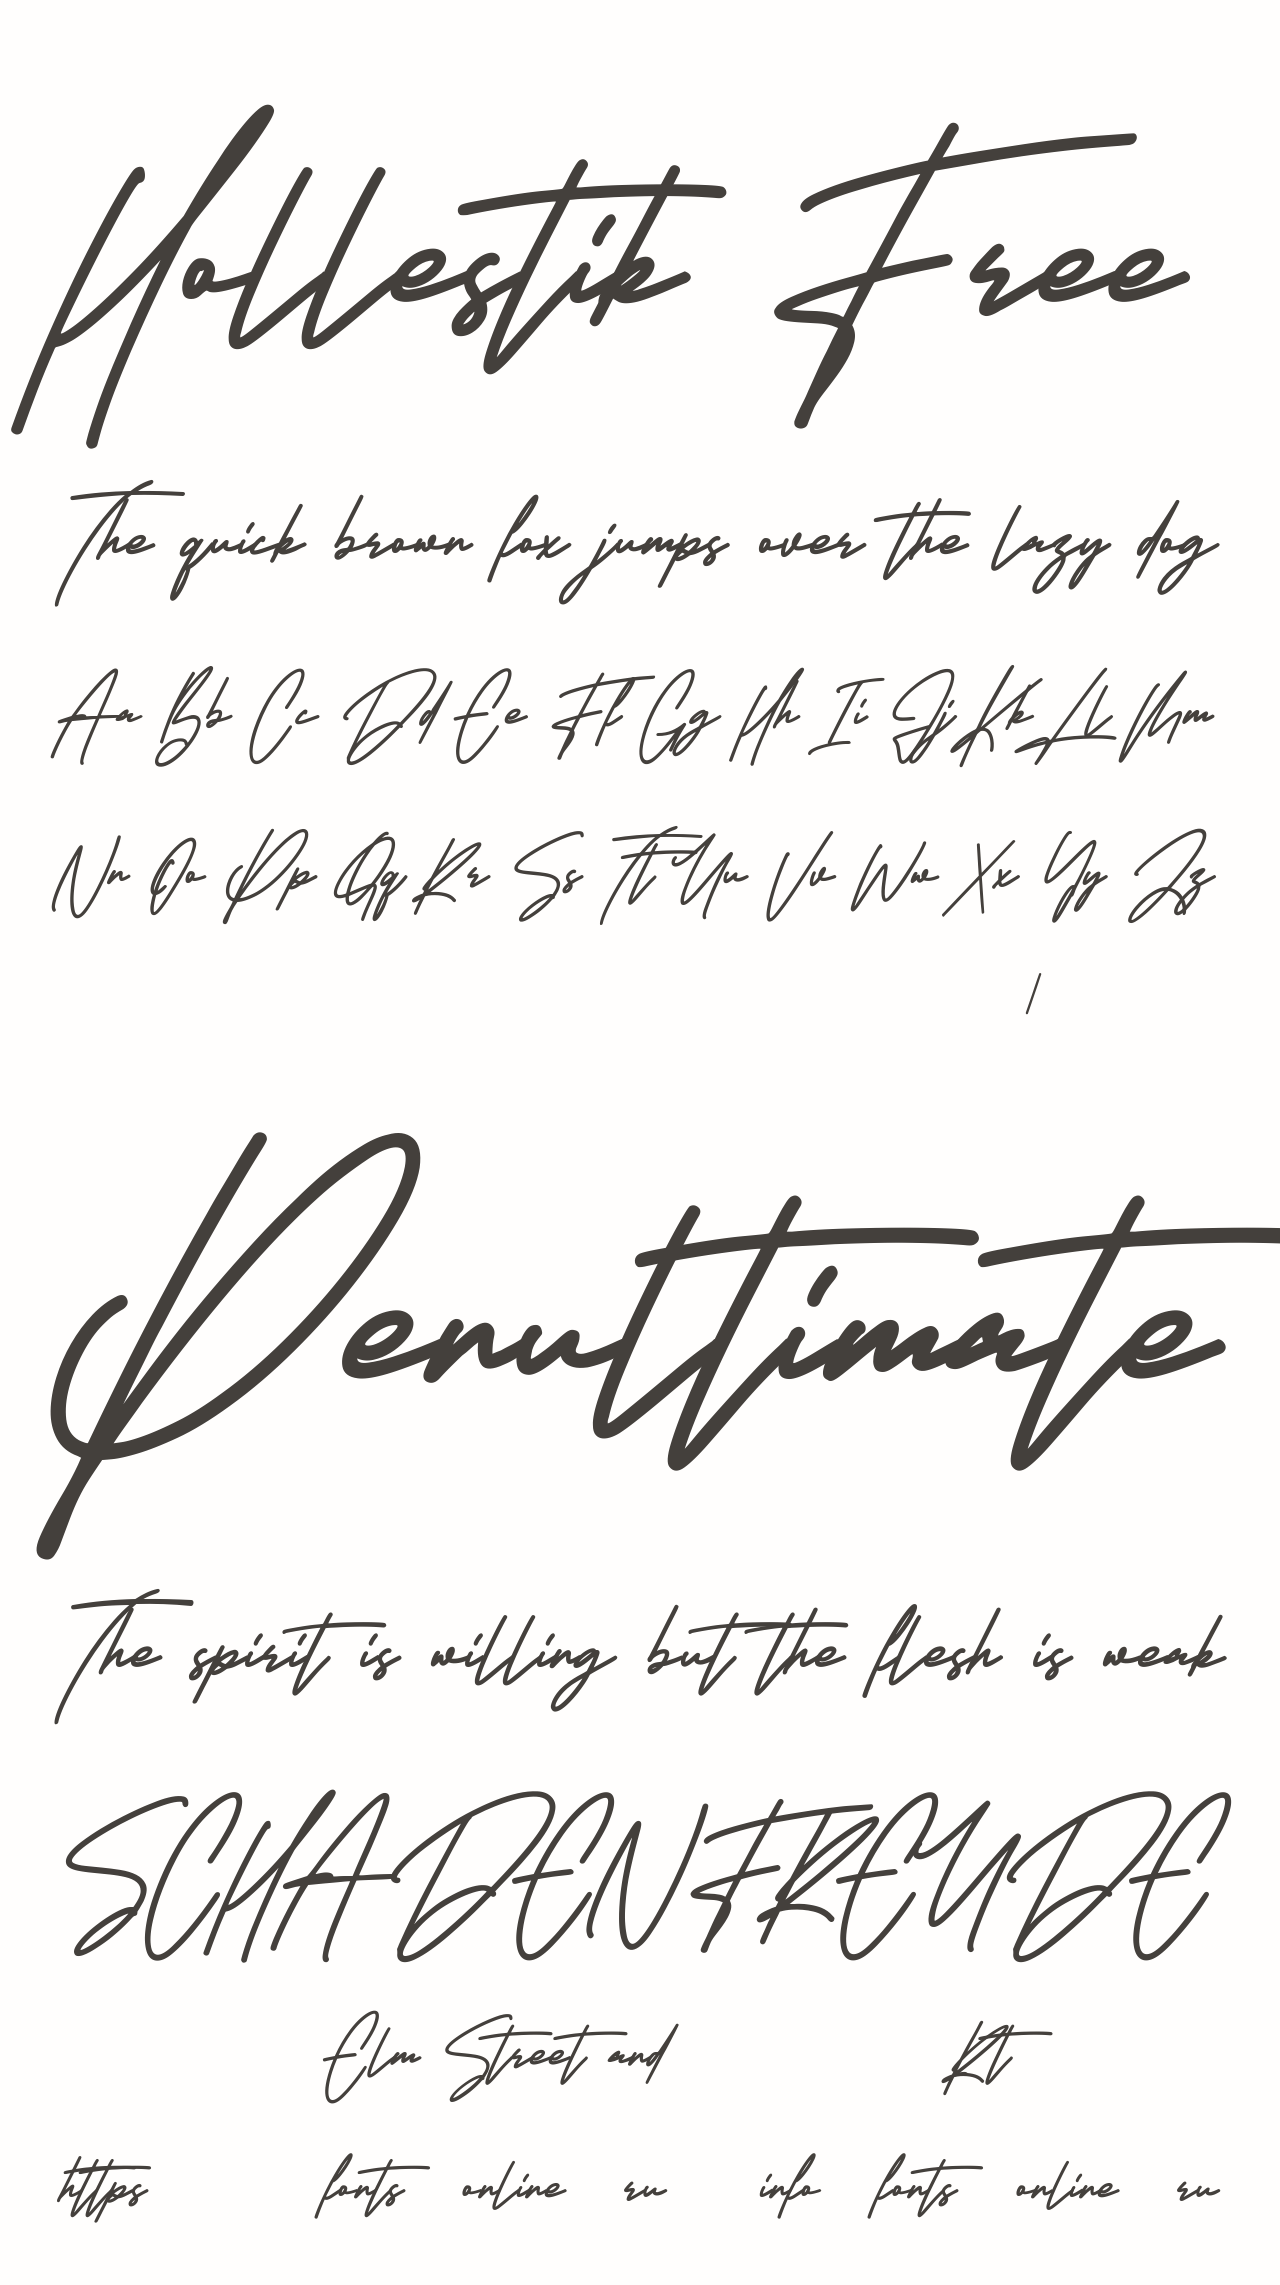 Hollestik Free
The quick brown fox jumps over the lazy dog
Aa Bb Cc Dd Ee Ff Gg Hh Ii Jj Kk Ll Mm
Nn Oo Pp Qq Rr Ss Tt Uu Vv Ww Xx Yy Zz
/
Penultimate
The spirit is willing but the flesh is weak
SCHADENFREUDE
Elm Street and Rt
https fonts online ru info fonts online ru